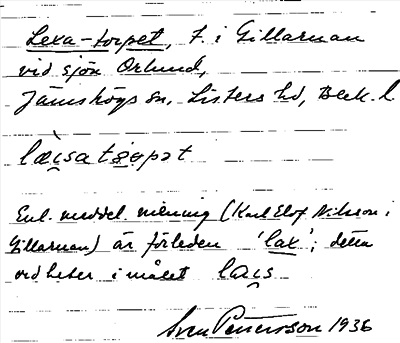 Lexa-torpet, t. i Gillarman
vid sjön Orlund,
Jämshögs sn, Listers hd, Blek. l.
læi̯sa tɷrpət
Enl. meddel. mening (Karl Elof Nilsson i
Gillarman) är förleden 'lax'; detta
ord heter i målet lais
Sven Pettersson 1936